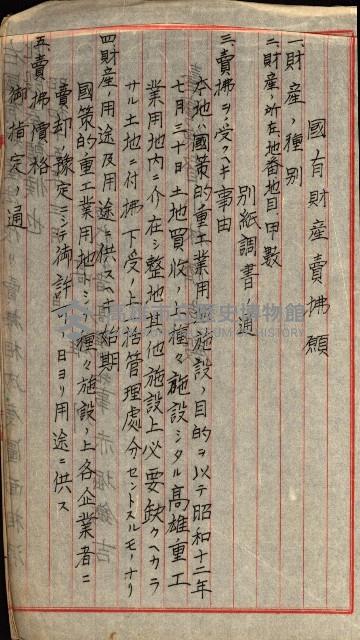 國有財產賣拂願
一、財產ノ種別
二、財產ノ所在地番地目甲數
別紙調書ノ通
三、賣拂ヲ受クヘキ事由
本地ハ國策的重工業用地施設ノ目的ヲ以テ昭和十二年
七月三十日土地買收ノ上種々施設シタル高雄重工
業用地內ニ介在シ整地其他施設上必要缺クヘカラ
サル土地ニ付拂下受ノ上一括管理處分セントスルモノナリ
四、財產ノ用途及用途ニ供スヘキ始期
國策的重工業用地トシ種々施設ノ上各企業者ニ
賣却豫定ニシテ御許可ノ日ヨリ用途ニ供ス
五、賣拂價格
御指定ノ通
高雄市立歷史博物館